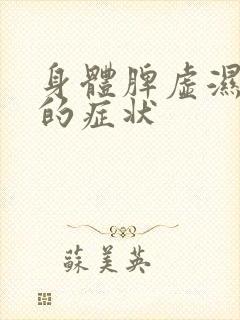 身體脾虛濕
的症狀
蘇美英